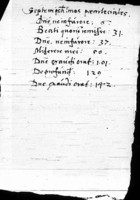 Septem psalmos penitentiales
Dne ne in furore : 6.
Beati quorum remisse : 31.
Dne. ne in furore : 37.
Miserere mei : 50.
Dne exaudi orat : 101.
De profundis : 129
Dne exaudi orat : 142.